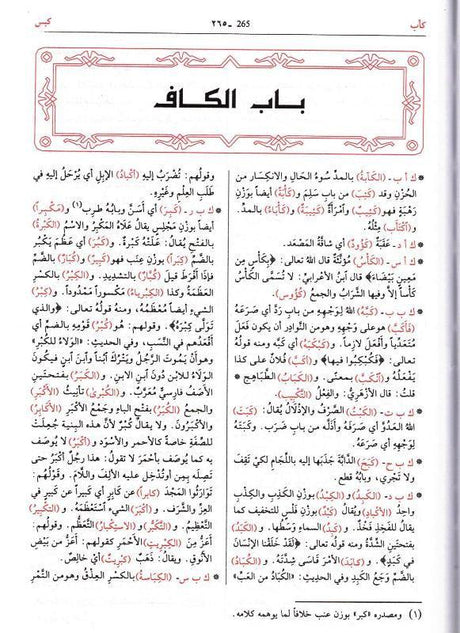 كأب
265 ـ ٢٦٥
كبس
باب الكاف
* ك أ ب ـ (الكَآبَةُ) بالمدِّ سوءُ الحَالِ والانكِسار من
الحُزْنِ وقد (كَئِبَ) من بابِ سَلِمَ و(كَآبَةً) أيضاً بوَزْنِ
رَهْبَةٍ فهو (كَئِيبٌ) وامْرَأَةٌ (كَئِيبَةٌ) و(كَأْبَاءُ) بالمدِّ.
و(اكْتَأَبَ) مِثْلُه.
* ك أ د ـ عَقَبَةٌ (كَؤُودٌ) أي شاقَّةُ المَصْعَدِ.
* ك أ س ـ (الكَأْسُ) مُؤَنَّثَةٌ قال اللهُ تعالى: ﴿بِكَأْسٍ مِن
مَعِينٍ بَيْضَاءَ﴾ قال ابنُ الأعرابيِّ: لا تُسَمَّى الكَأْسُ
كَأْساً إلا وفيها الشَّرَابُ والجمعُ (كُؤُوس).
* ك ب ب ـ (كَبَّهُ) اللهُ لِوَجْهِهِ من بابِ رَدَّ أي صَرَعَهُ
(فَأَكَبَّ) هو على وَجْهِهِ وهو من النَّوادر أن يكون فَعَلَ
مُتعدِّياً وأَفْعَلَ لازماً. و(كَبْكَبَهُ) أي كَبَّهُ ومنه قولُه
تعالى: ﴿فَكُبْكِبُوا فيها﴾ و(أكَبَّ) فُلانٌ على كذا
يَفْعَلُهُ و(انْكَبَّ) بمعنًى. و(الكَبَابُ) الطَّبَاهِج *
قلتُ: قال الأزْهَرِيُّ: والفِعْلُ (التَّكْبِيبُ).
* ك ب ت ـ (الكَبْتُ) الصَّرْفُ والإذْلالُ يُقالُ: (كَبَتَ)
اللهُ العَدُوَّ أي صَرَفَهُ وأذَلَّهُ من باب ضَرَب. وكَبَتَهُ
لِوَجْهِهِ أي صَرَعَهُ.
* ك ب ح ـ (كَبَحَ) الدَّابَّةَ جَذَبَها إليه باللِّجَامِ لِكَيْ تَقِفَ
ولا تَجْرِي، وبابُه قطع.
* ك ب د ـ (الكَبِدُ) و(الكِبْدُ) بوَزْنِ الكَذِبِ والكِذْبِ
واحِدُ (الأكْبَادِ) ويُقالُ (كَبْدٌ) بوَزْنِ فَلْسٍ للتخفيف كما
يُقال للفَخِذ فَخْذٌ. و(كَبِدُ) السماءِ وَسَطُها. و(الكَبَدُ)
بفتحتين الشِّدَّةُ ومنه قولُه تعالى: ﴿لَقَدْ خَلَقْنَا الإنْسَانَ
في كَبَدٍ﴾. و(كَابَدَ) الأمْرَ قَاسَى شِدَّتَه. و(الكُبَادُ)
بالضَّمِّ وَجَعُ الكَبِدِ وفي الحديث: «الكُبَادُ من العَبِّ»
وقولُهم: تُضْرَبُ إليه (أكْبَادُ) الإبِلِ أي يُرْحَلُ إليه في
طَلَبِ العِلْمِ وغَيْرِهِ.
* ك ب ر ـ (كَبِرَ) أي أسَنَّ وبابُه طَرِب(١) و(مَكْبِراً)
أيضاً بوَزْنِ مَجْلِسٍ يقالُ عَلَاهُ المَكْبِرُ والاسْمُ (الكَبْرَةُ)
بالفتح يُقالُ: عَلَتْهُ كَبْرَةٌ. و(كَبُرَ) أي عَظُمَ يَكْبُرُ
بالضَّمِّ (كِبَراً) بوَزْنِ عِنَبٍ فهو (كَبِيرٌ) و(كُبَارٌ) بالضَّمِّ
فإذا أفْرَطَ قِيلَ (كُبَّارٌ) بالتشديد. و(الكِبْرُ) بالكسرِ
العَظَمَةُ وكذا (الكِبْرِياءُ) مَكْسُوراً مَمْدُوداً. و(كِبْرُ)
الشيءِ أيضاً مُعْظَمُهُ، ومنه قولُه تعالى: ﴿والذي
تَوَلَّى كِبْرَهُ﴾. وقولُهم: هو (كُبْرُ) قَوْمِهِ بالضَّمِّ أي
أقْعَدُهم في النَّسَب، وفي الحديث: «الوَلاءُ للكُبْرِ»
وهو أن يَمُوتَ الرَّجُلُ ويَتْرُكَ ابْناً وابنَ ابنٍ فيكُونُ
الوَلاءُ للابْنِ دُونَ ابنِ الابنِ. و(الكَبَرُ) بفتحتَين
الأصَفُ فارسِيٌّ مُعَرَّبٌ. و(الكُبْرَى) تأنِيثُ (الأكْبَرِ)
والجمعُ (الكُبَرُ) بفتح الباءِ وجَمْعُ الأكْبَرِ (الأكَابِرُ)
والأكْبَرُونَ. ولا يقالُ كُبْرٌ لأنَّ هذه البِنْيَةَ جُعِلَتْ
للصِّفَةِ خاصةً كالأحمرِ والأسْوَدِ و(أكْبَرُ) لا يُوصَفُ
به كما يُوصَفُ بأحمر لا تقولُ: هذا رَجُلٌ أكْبَرُ حتى
تَصِلَهُ بِمِن أو تُدْخِلَ عليه الألِفَ واللَّامَ. وقَوْلُهُم:
تَوَارَثُوا المَجْدَ (كَابِراً) عن كابرٍ أي كَبيراً عن كبيرٍ في
العِزِّ والشَّرَفِ. و(أكْبَرَ) الشيءَ اسْتَعْظَمَهُ. و(التَّكْبِيرُ)
التَّعْظِيمُ. و(التَّكَبُّرُ) و(الاسْتِكْبَارُ) التَّعَظُّمُ. وقولُهم:
أعَزُّ من (الكِبْرِيتِ) الأحْمَرِ كقولهم: أعَزُّ من بَيْضِ
الأنُوقِ. ويقالُ: ذَهَبٌ (كِبْرِيتٌ) أي خالِصٌ.
* ك ب س ـ (الكِبَاسَةُ) بالكسرِ العِذْقُ وهو من التَّمْرِ
(١) ومصدره «كبر» بوزن عنب خلافاً لما يوهمه كلامه.